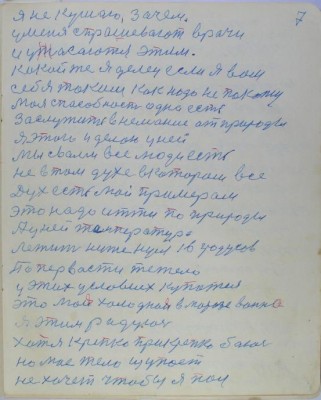 7
я не кушаю, зачем.
уменя страшевают врачи
и ужасаются этим.
какой же я делец если я вам
себя таким как надо не покажу
моя способность одна есть
заслужить внемание от природы
я этого и делаю у ней
мы свами все люди есть
не в том духе в котором все
Дух есть мой примерам
это надо итти по природы
А у ней температура
лежит ниже нуля 16 градусов
По первости тяжело
у этих условиях купатся
это мой холодной в марозе ванна
Я этим радуюсь
хотя крепко прикрепко балею
но мое тело щупает
не хочет чтобы я пал